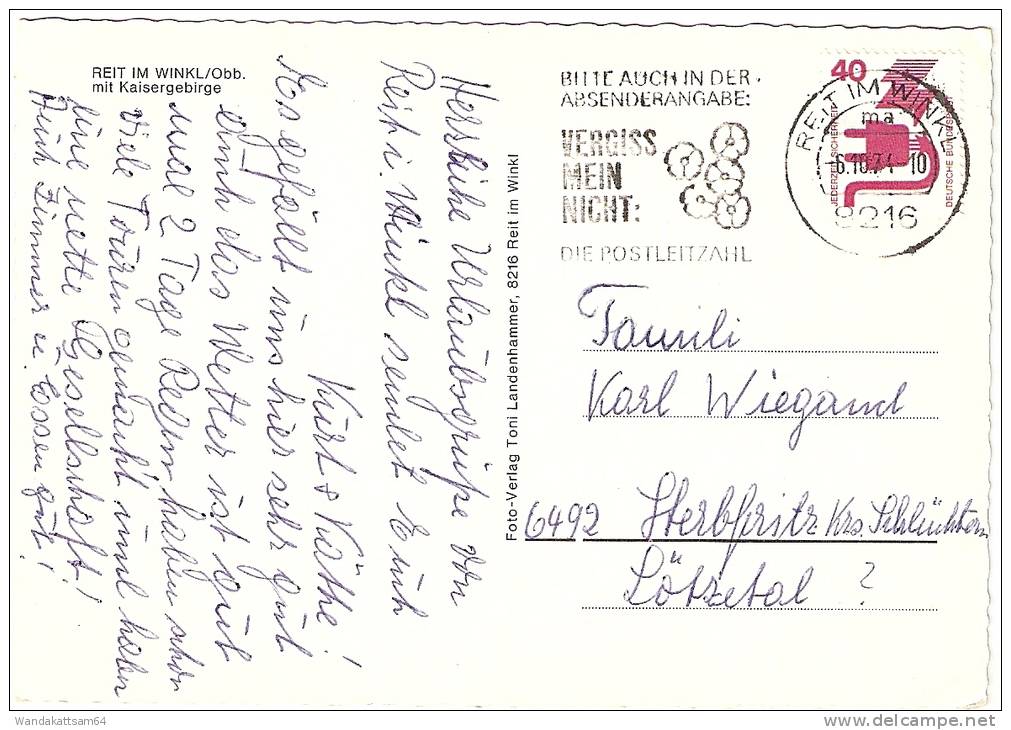 REIT IM WINKL/Obb.
mit Kaisergebirge
Herzliche Urlaubsgrüße von
Reit i. Winkl sendet Euch
Kurt & Käthe!
Es gefällt uns hier sehr gut
Auch das Wetter ist gut
nur 2 Tage Regen, haben schon
viele Touren gemacht und haben
eine nette Gesellschaft!
Auch Zimmer u. Essen gut!
Foto-Verlag Toni Landenhammer, 8216 Reit im Winkl
BITTE AUCH IN DER
ABSENDERANGABE:
VERGISS
MEIN
NICHT:
DIE POSTLEITZAHL
REIT IM WINKL
ma
6.10.74-10
8216
40
JEDERZEIT SICHERHEIT
DEUTSCHE BUNDESP
Familie
Karl Wiegand
6492 Sterbfritz Krs. Schlüchtern
Lötzetal ?
Wandakattsam64
delcampe.net